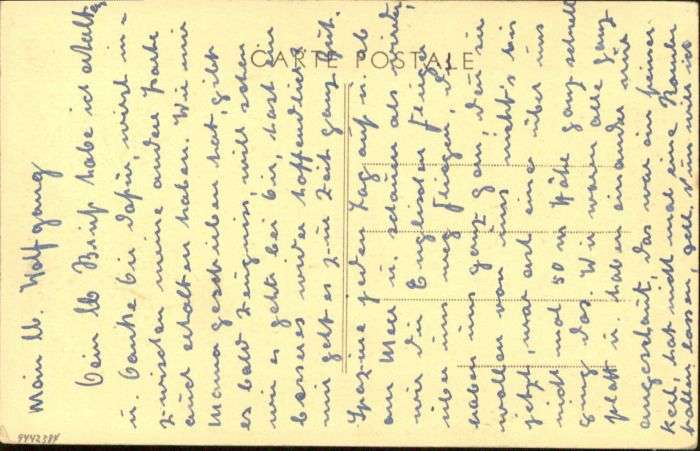 CARTE POSTALE
Mein lb. Wolfgang
Dein lb Brief habe ich erhalten
u. danke Dir dafür, wirst in-
zwischen meine andere Karte
auch erhalten haben. Wie mir
Mama geschrieben hat, gibt
es bald Zeugniss, will sehen
wie es geht bei Dir, hast ein
besseres wider hoffendlich.
mir geht es z-ur Zeit ganz gut.
jeden Tag auf u. ab
am Meer u. schauen als wider,
wie die Engländer flieger
über uns weg fliegen, die
ganz gern, den sie
wollen von uns nichts bis
jetzt, war erst einer über uns
nicht mal 50 m Höhe ganz schnell
ging das. Wir waren alle ganz
platt u. haben einander nur
angeschaut, das war ein feiner
Kerl, hat nicht mal eine
fallen lassen
9442384